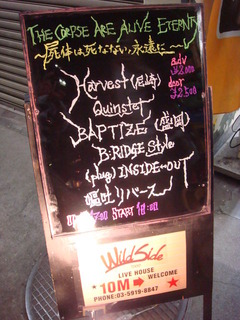 THE CORPSE ARE ALIVE ETERNITY
~屍体は死なない,永遠に~
adv
¥2,000
door
¥2,500
Harvest
Quinstet
BAPTIZE
B-RIDGE Style
(plug) INSIDE-OUT
嘔吐リバース
START 18:00
Wild Side
LIVE HOUSE
10M WELCOME
PHONE:03-5919-8847